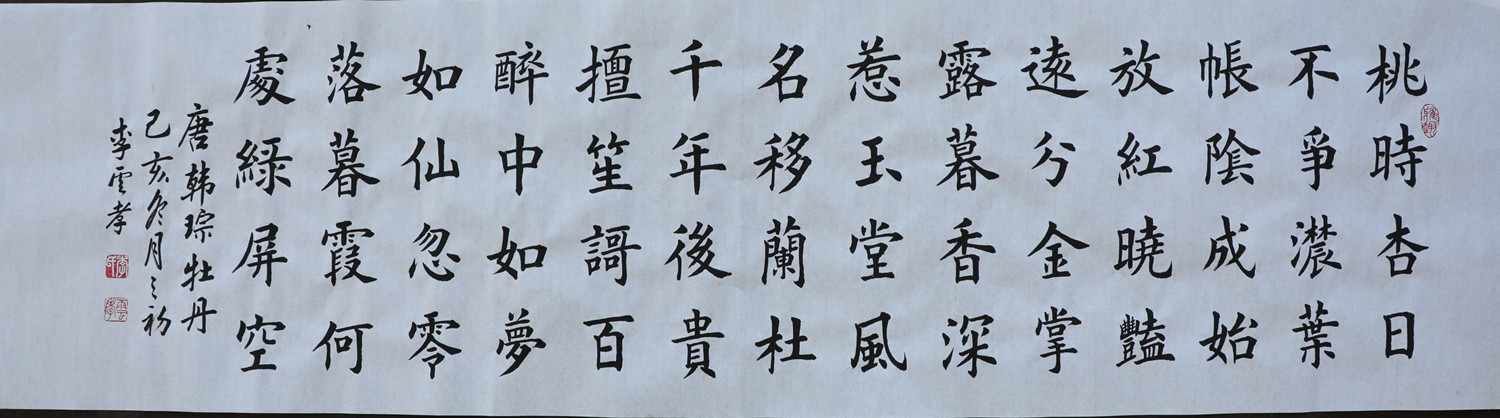 桃時杏日
不爭濃葉
帳陰成始
放紅曉豔
遠分金掌
露暮香深
惹玉堂風
名移蘭杜
千年後貴
擅笙謌百
醉中如夢
如仙忽零
落暮霞何
處綠屏空
唐韩琮牡丹
己亥冬月之初
李雲孝
雲孝